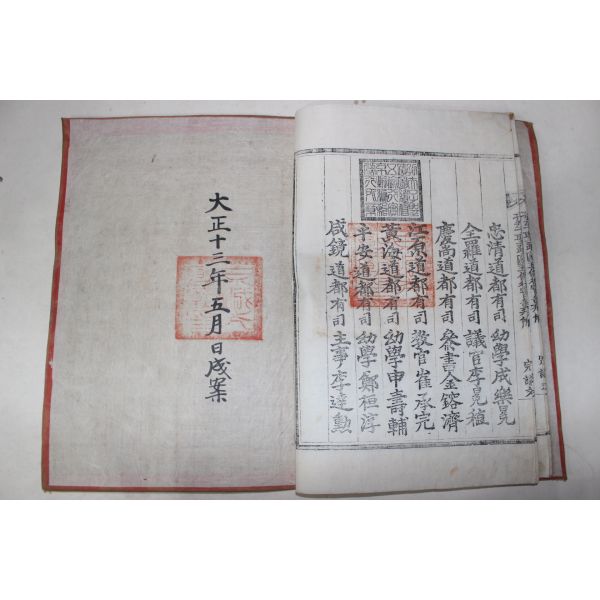 忠清道都有司 幼學成樂冕
全羅道都有司 議官李冕稙
慶尙道都有司 參書金鎔濟
江原道都有司 敎官崔承完
黃海道都有司 幼學申壽輔
平安道都有司 幼學鄭桓淳
咸鏡道都有司 主事李達勲
大正十三年五月 日成案